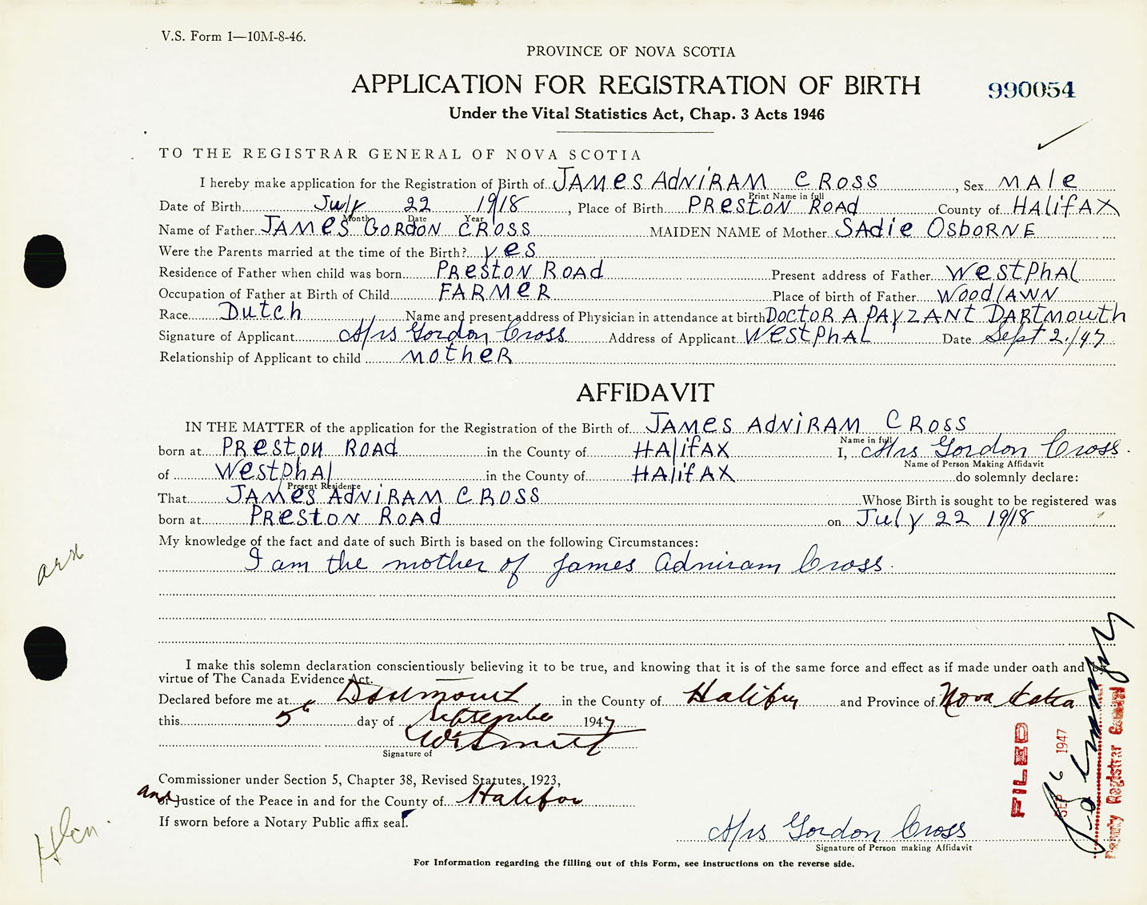 V.S. Form 1—10M-8-46.
PROVINCE OF NOVA SCOTIA
APPLICATION FOR REGISTRATION OF BIRTH
990054
Under the Vital Statistics Act, Chap. 3 Acts 1946
TO THE REGISTRAR GENERAL OF NOVA SCOTIA
I hereby make application for the Registration of Birth of JAMES ADNIRAM CROSS, Sex MALE
Print Name in full
Date of Birth July 22 1918, Place of Birth PRESTON ROAD County of HALIFAX
Month Date Year
Name of Father JAMES GORDON CROSS MAIDEN NAME of Mother SADIE OSBORNE
Were the Parents married at the time of the Birth? yes
Residence of Father when child was born PRESTON ROAD Present address of Father WESTPHAL
Occupation of Father at Birth of Child FARMER Place of birth of Father WOODLAWN
Race Dutch Name and present address of Physician in attendance at birth DOCTOR A PAYZANT DARTMOUTH
Signature of Applicant Mrs Gordon Cross Address of Applicant WESTPHAL Date Sept 2./47
Relationship of Applicant to child MOTHER
AFFIDAVIT
IN THE MATTER of the application for the Registration of Birth of JAMES ADNIRAM CROSS
Name in full
born at PRESTON ROAD in the County of HALIFAX I, Mrs Gordon Cross
Name of Person Making Affidavit
of WESTPHAL in the County of HALIFAX do solemnly declare:
Present Residence
That JAMES ADNIRAM CROSS Whose Birth is sought to be registered was
born at PRESTON ROAD on July 22 1918
My knowledge of the fact and date of such Birth is based on the following Circumstances:
I am the mother of James Adniram Cross.
I make this solemn declaration conscientiously believing it to be true, and knowing that it is of the same force and effect as if made under oath and by
virtue of The Canada Evidence Act.
Declared before me at in the County of Halifax and Province of Nova Scotia
this 5th day of September 1947
Signature of
Commissioner under Section 5, Chapter 38, Revised Statutes, 1923,
and or Justice of the Peace in and for the County of Halifax
If sworn before a Notary Public affix seal.
Mrs Gordon Cross
Signature of Person making Affidavit
For Information regarding the filling out of this Form, see instructions on the reverse side.
FILED
SEP 6 1947
Deputy Registrar General